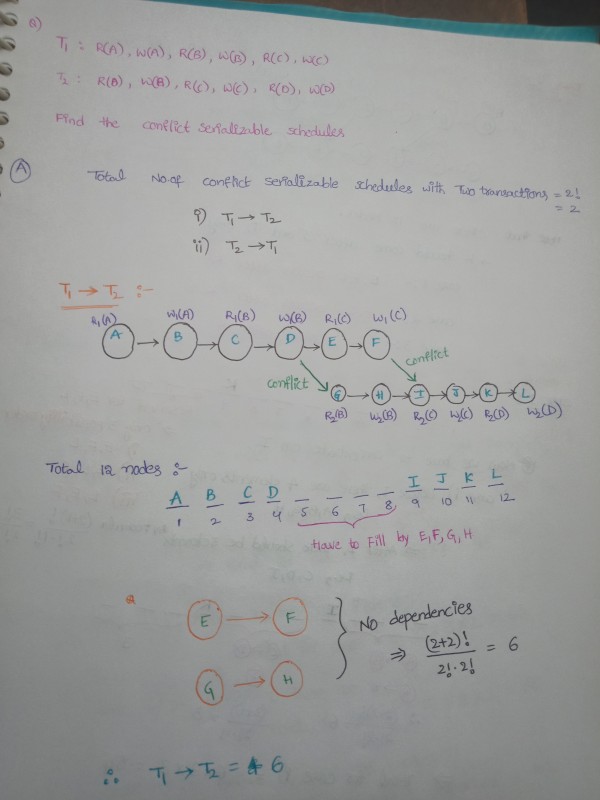 Q)
T1 : R(A), W(A), R(B), W(B), R(C), W(C)
T2 : R(B), W(B), R(C), W(C), R(D), W(D)
Find the conflict serializable schedules
A
Total No.of conflict serializable schedules with Two transactions = 2!
= 2
i) T1 → T2
ii) T2 → T1
T1 → T2 :-
R1(A) W1(A) R1(B) W1(B) R1(C) W1(C)
A B C D E F
conflict conflict
G H I J K L
R2(B) W2(B) R2(C) W2(C) R2(D) W2(D)
Total 12 nodes :-
A B C D _ _ _ _ I J K L
1 2 3 4 5 6 7 8 9 10 11 12
Have to Fill by E,F,G,H
E → F
G → H
No dependencies
⇒ (2+2)! / 2!·2! = 6
∴ T1 → T2 = 6